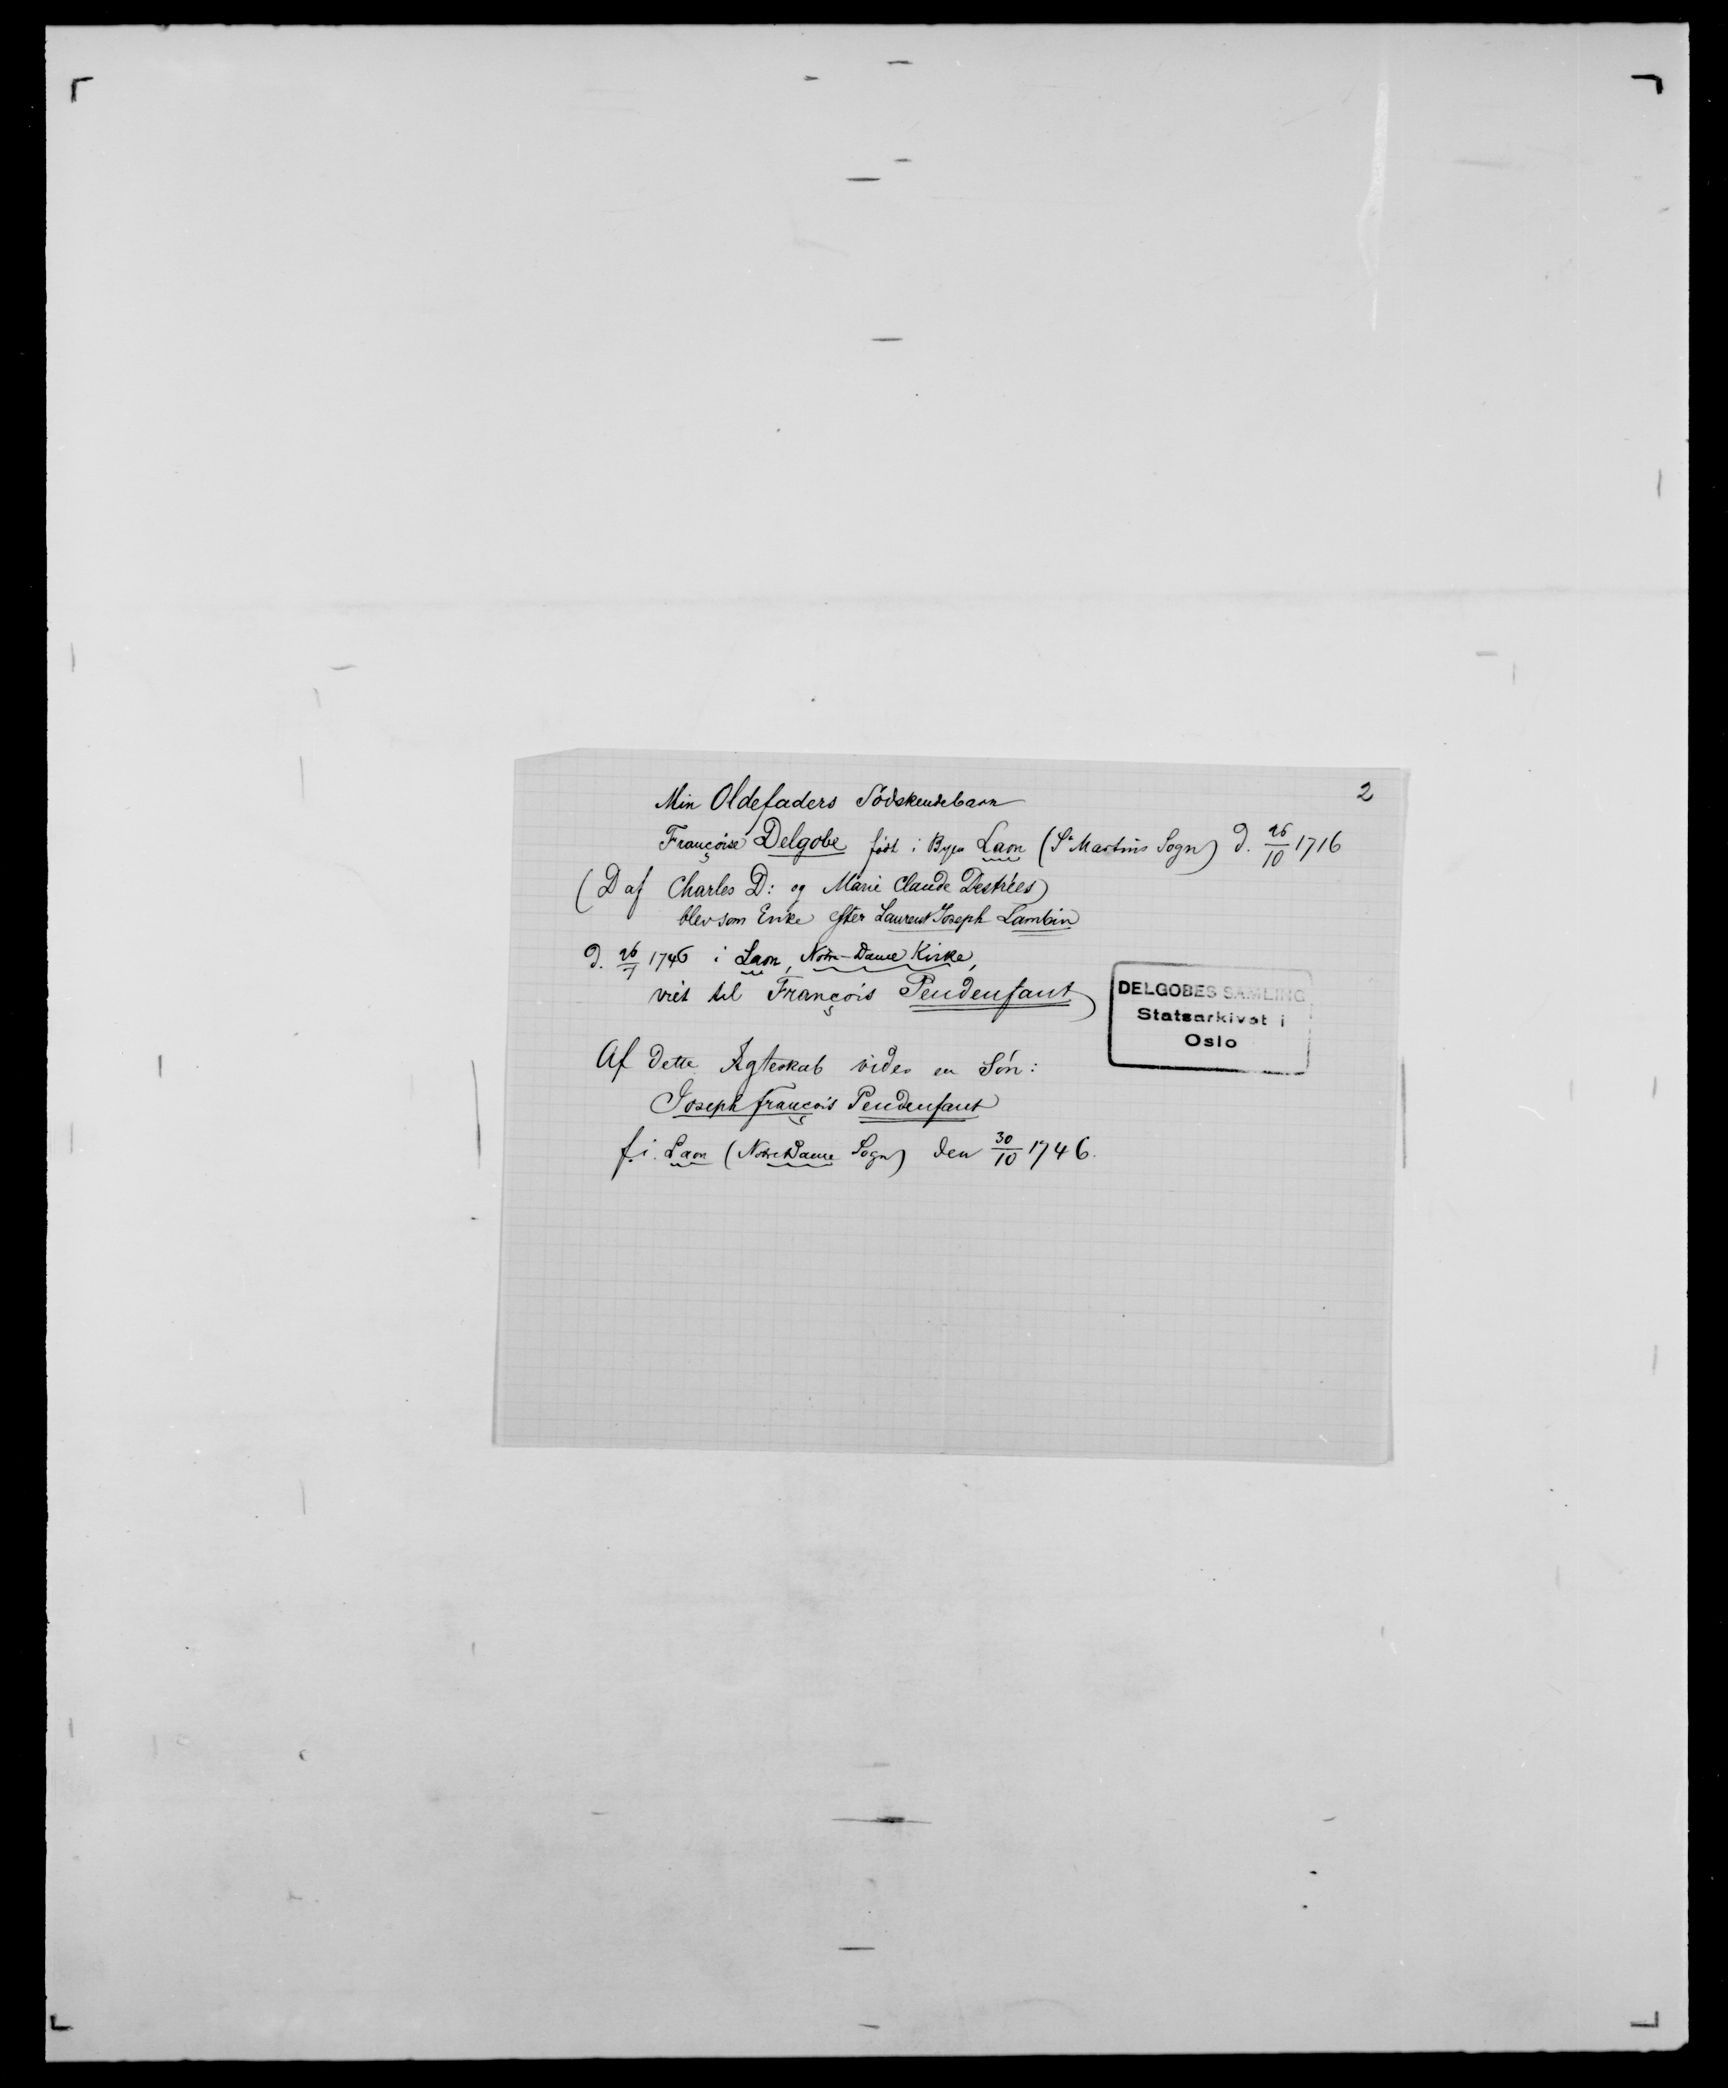 2
Min Oldefaders Södskendebarn
Françoise Delgobe født i Byen Laon (St Martins Sogn) d. 26/10 1716
(D af Charles D: og Marie Claude Destrées)
blev som Enke efter Laurent Joseph Lambin
d. 26/7 1746 i Laon, Notre-Dame Kirke,
viet til François Pendenfant
Af dette Ægteskab vides en Sön:
Joseph François Pendenfant
f. i. Laon (Notre Dame Sogn) den 30/10 1746.
DELGOBES SAMLING
Statsarkivet i
Oslo